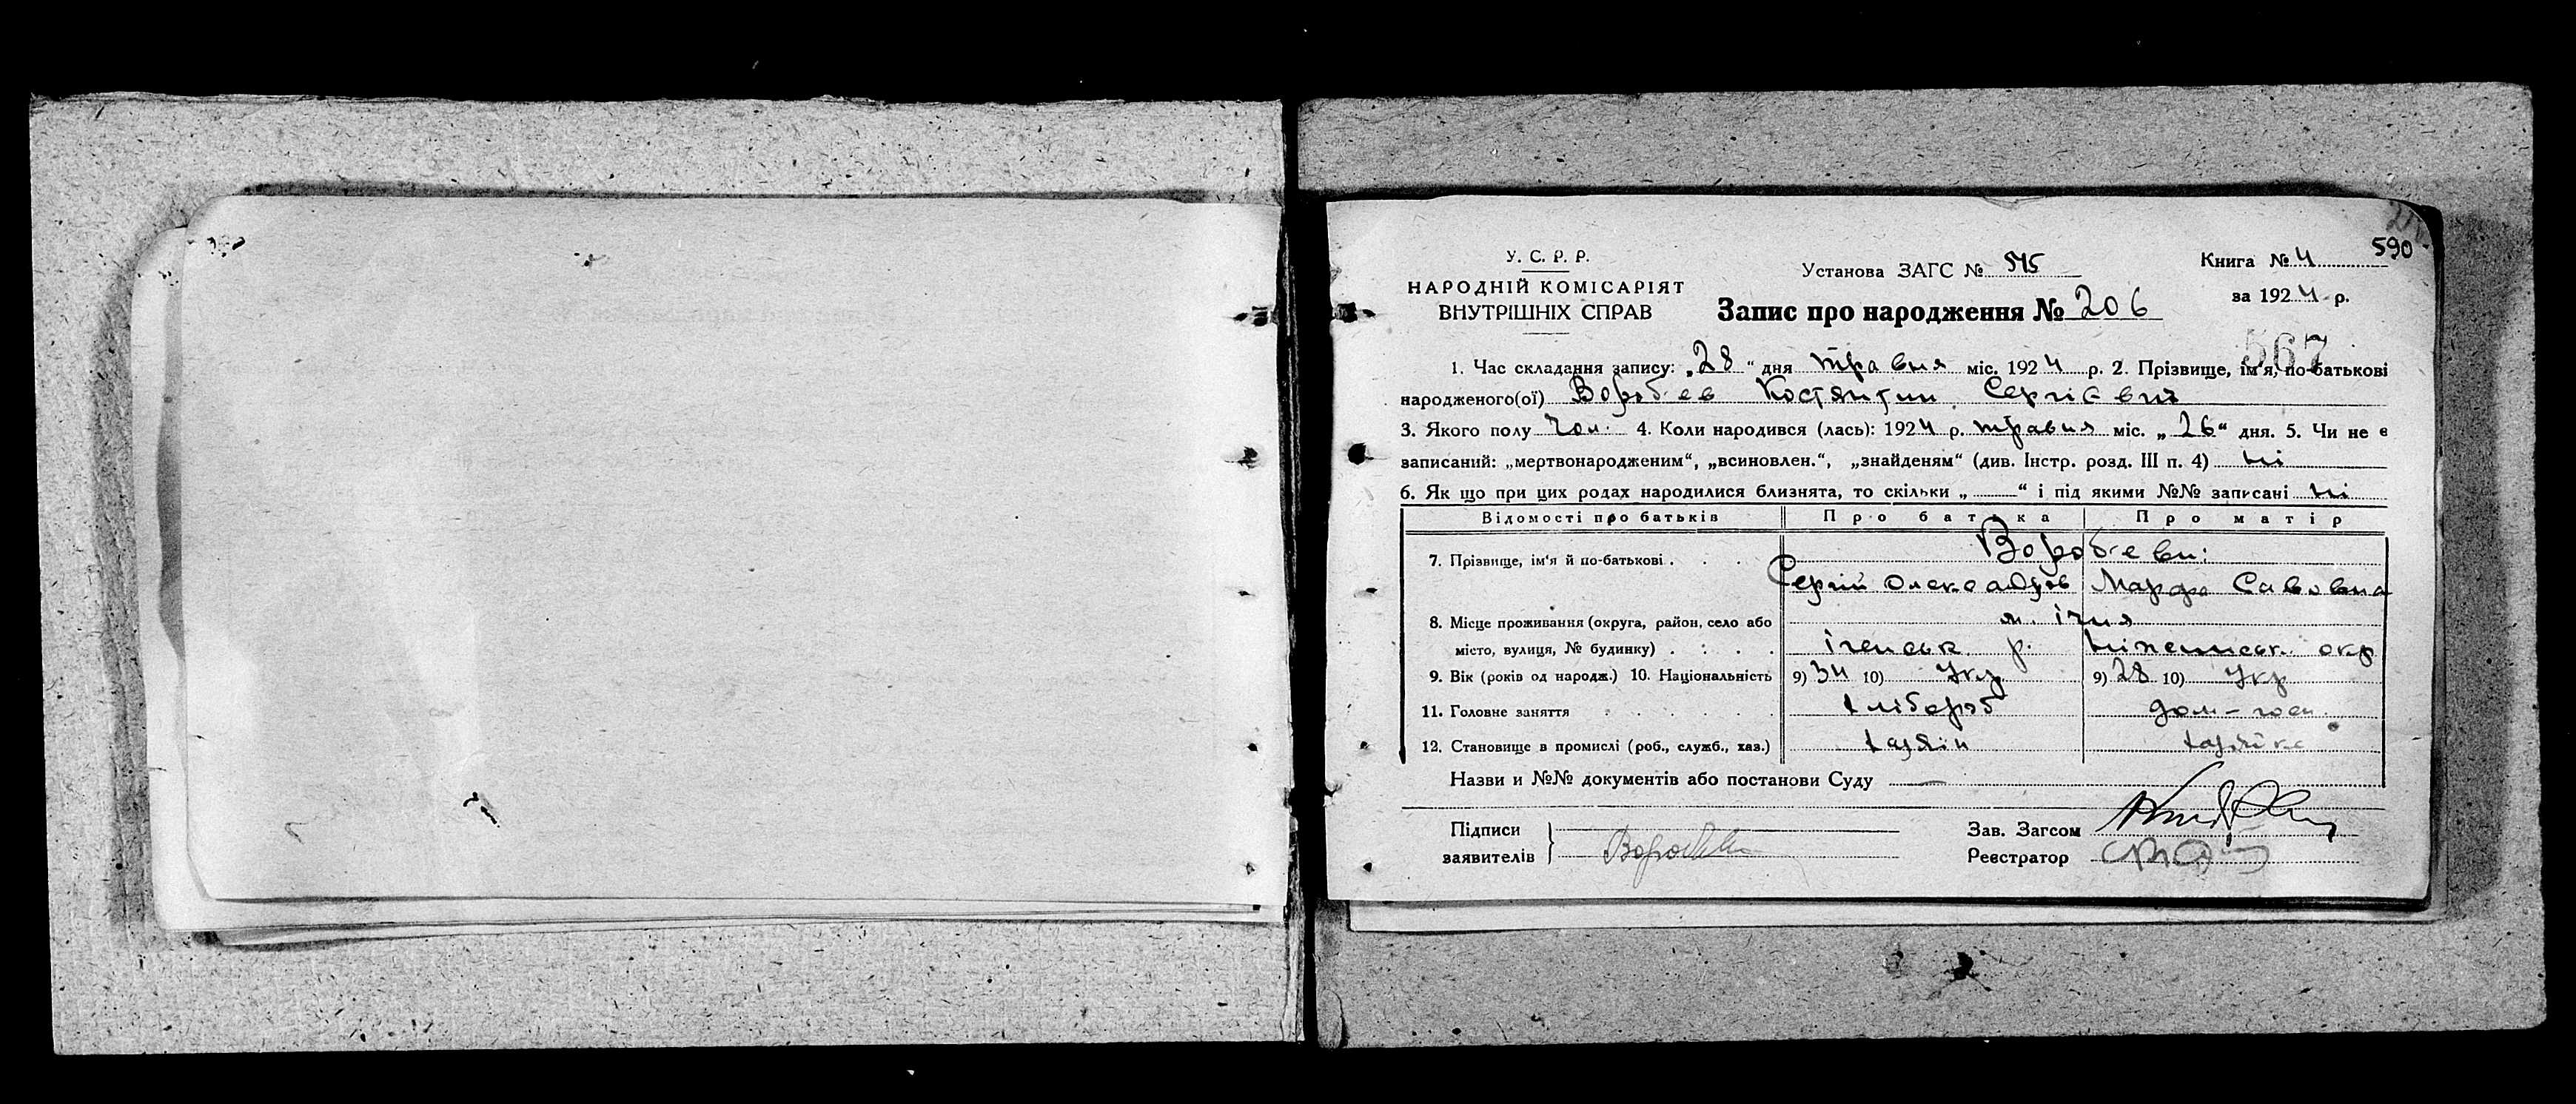 590
У. С. Р. Р.
НАРОДНІЙ КОМІСАРІЯТ
ВНУТРІШНІХ СПРАВ
Установа ЗАГС № 515
Книга № 4
за 1924 р.
Запис про народження № 206
567
1. Час складання запису: „28“ дня травня міс. 1924 р. 2. Прізвище, ім'я, по-батькові
народженого(ої) Вороб'ев Костянтин Сергієвич
3. Якого полу чол. 4. Коли народився (лась): 1924 р. травня міс. „26“ дня. 5. Чи не є
записаний: „мертвонародженим“, „всиновлен.“, „знайденям“ (див. Інстр. розд. III п. 4) ні
6. Як що при цих родах народилися близнята, то скільки „ “ і під якими №№ записані ні
Відомості про батьків Про батька Про матір
7. Прізвище, ім'я й по-батькові . . . Вороб'еви:
Сергій Олександров Марфа Савовна
8. Місце проживання (округа, район, село або м. ічня
місто, вулиця, № будинку) . . . . іченськ р. Ніженськ. окр
9. Вік (років од народж.) 10. Національність 9) 34 10) Укр 9) 28 10) Укр
11. Головне заняття . . . . . . хлібороб дом-госп.
12. Становище в промислі (роб., служб., хаз.) хазяїн хазяйка
Назви и №№ документів або постанови Суду —
Підписи
заявителів
Зав. Загсом
Реєстратор